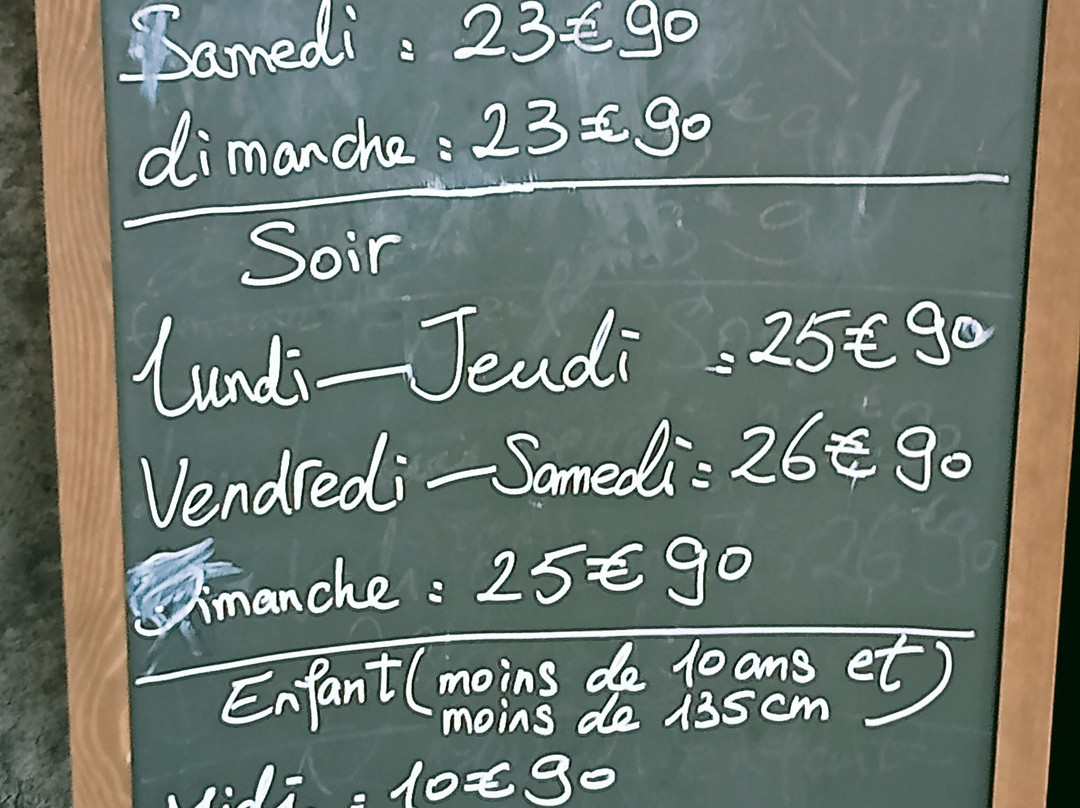 Samedi : 23€90
dimanche : 23€90
Soir
Lundi—Jeudi : 25€90
Vendredi—Samedi : 26€90
Dimanche : 25€90
Enfant (moins de 10 ans et
moins de 135 cm)
Midi : 10€90